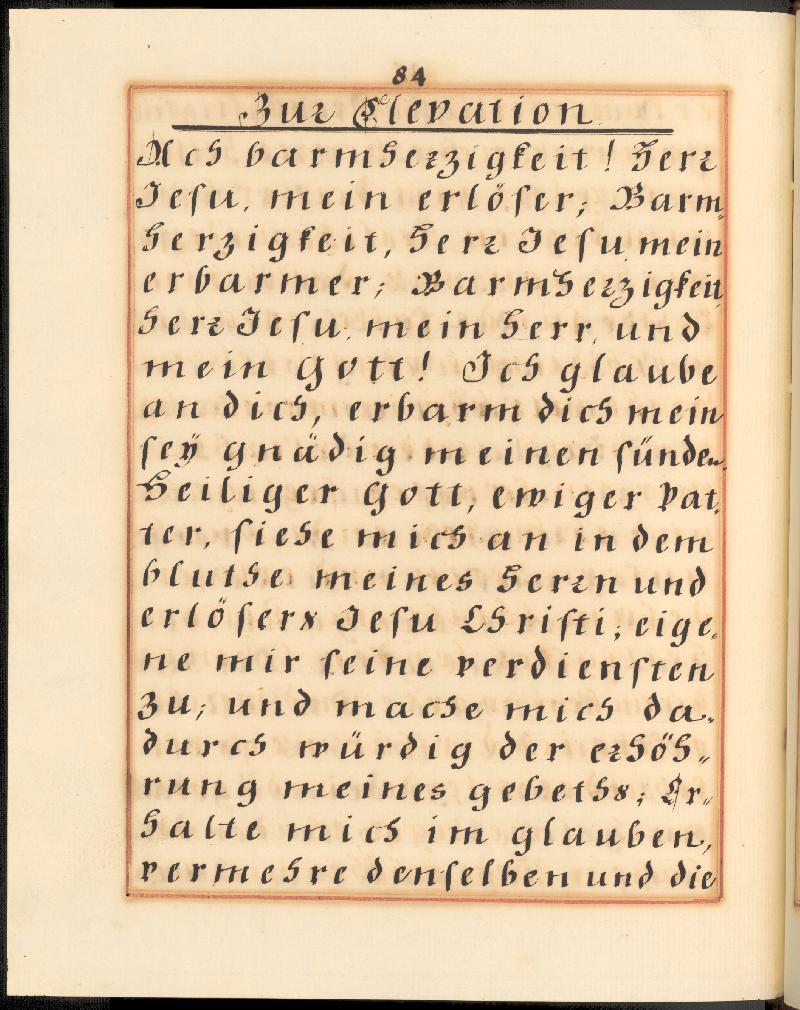 84
Zur Elevation
Ach barmherzigkeit! Herr
Jesu, mein erlöser; Barm-
herzigkeit, Herr Jesu mein
erbarmer; Barmherzigkeit,
herr Jesu, mein Herr, und
mein Gott! Ich glaube
an dich, erbarm dich mein
seÿ gnädig meinen sünden.
Heiliger Gott, ewiger Vat-
ter, siehe mich an in dem
bluthe meines Herrn und
erlösers Jesu Christi; eige-
ne mir seine verdiensten
zu; und mache mich da-
durch würdig der erhöh-
rung meines gebeths; Er-
halte mich im glauben,
vermehre denselben und die